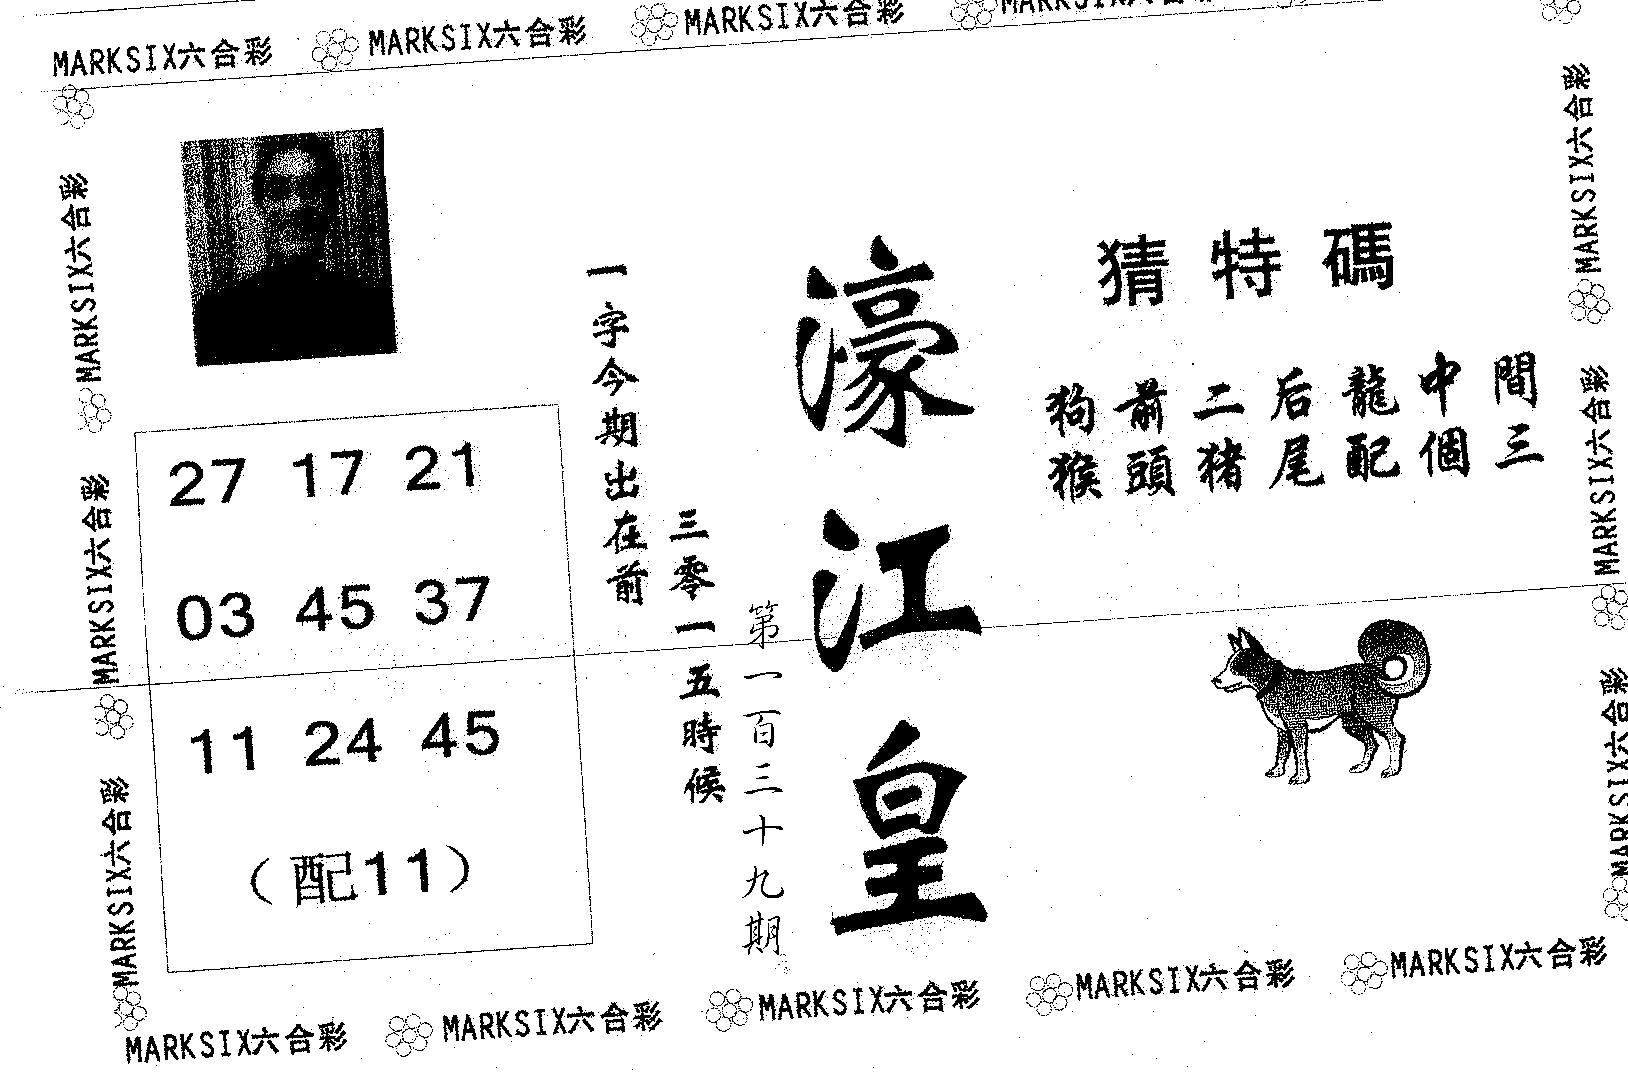 MARKSIX六合彩 MARKSIX六合彩 MARKSIX六合彩 MARKSIX六合彩
MARKSIX六合彩
MARKSIX六合彩
MARKSIX六合彩
27 17 21
03 45 37
11 24 45
（配11）
一字今期出在前
三零一五時候
第一百三十九期
濠江皇
猜特碼
狗前二后龍中間
猴頭猪尾配個三
MARKSIX六合彩
MARKSIX六合彩
MARKSIX六合彩
MARKSIX六合彩 MARKSIX六合彩 MARKSIX六合彩 MARKSIX六合彩 MARKSIX六合彩